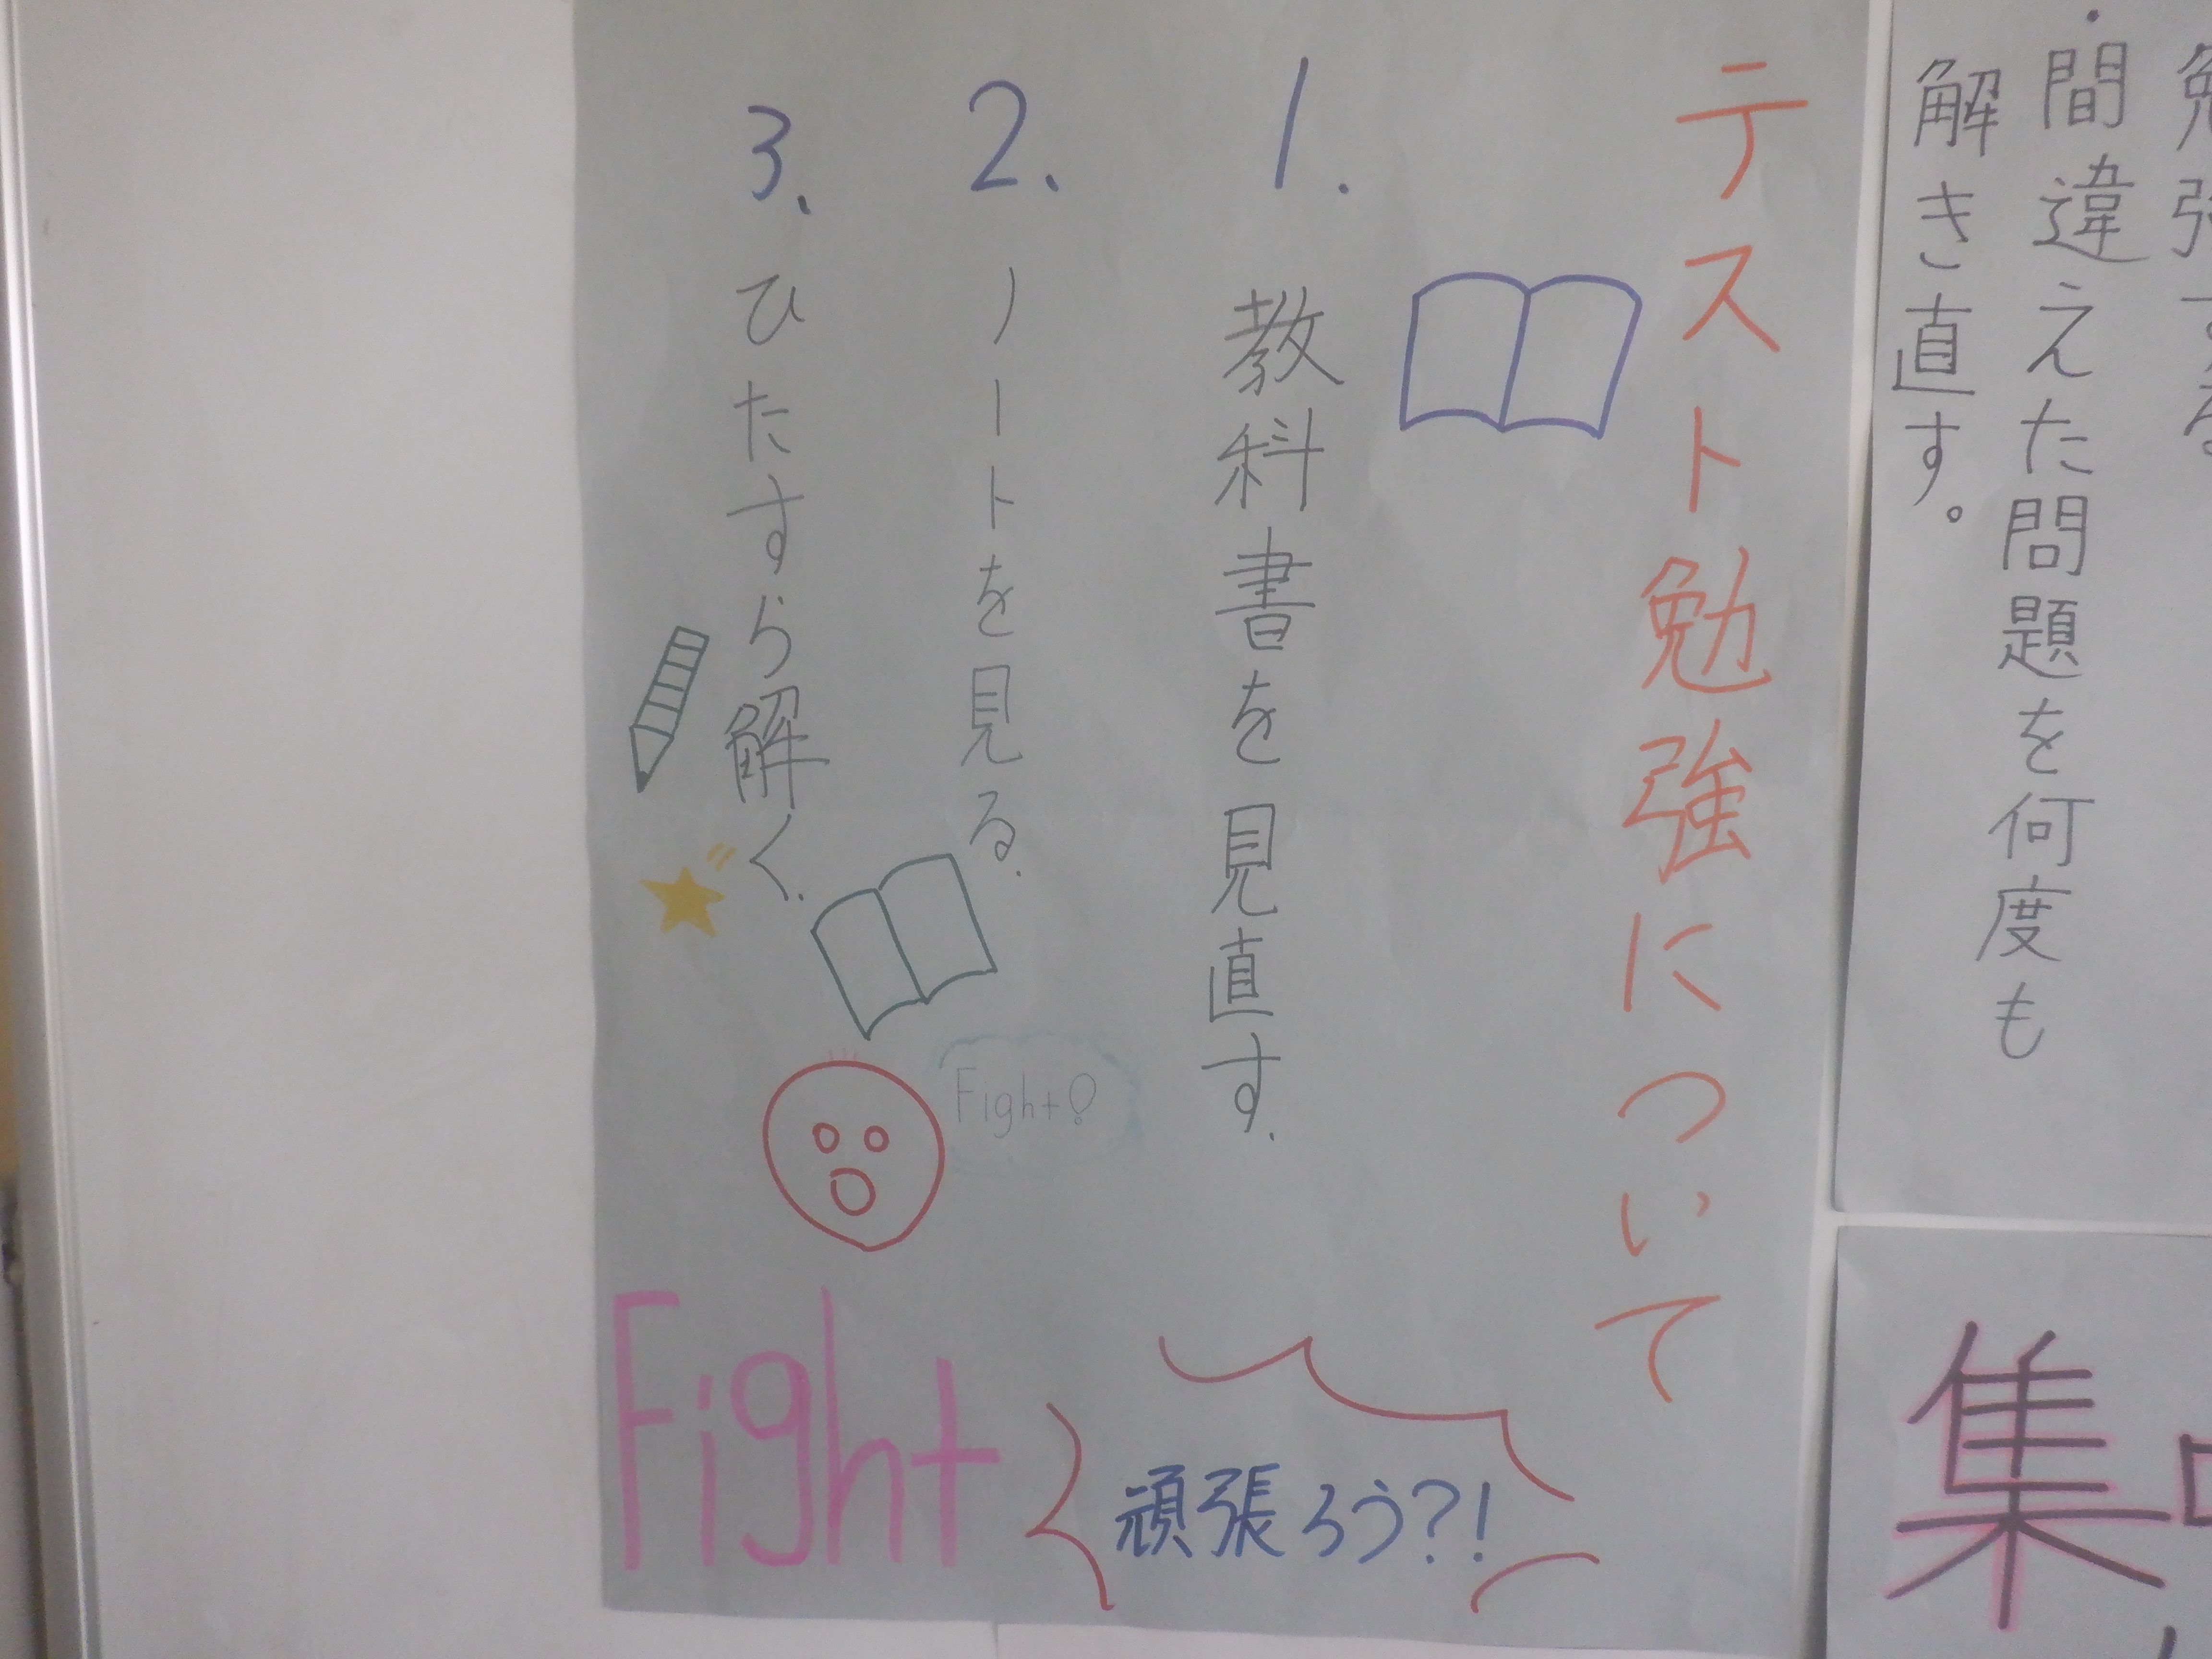 ・間違えた問題を何度も
解き直す。
集
テスト勉強について
1. 教科書を見直す.
2. ノートを見る.
3. ひたすら解く.
Fight!
Fight
頑張ろう?!